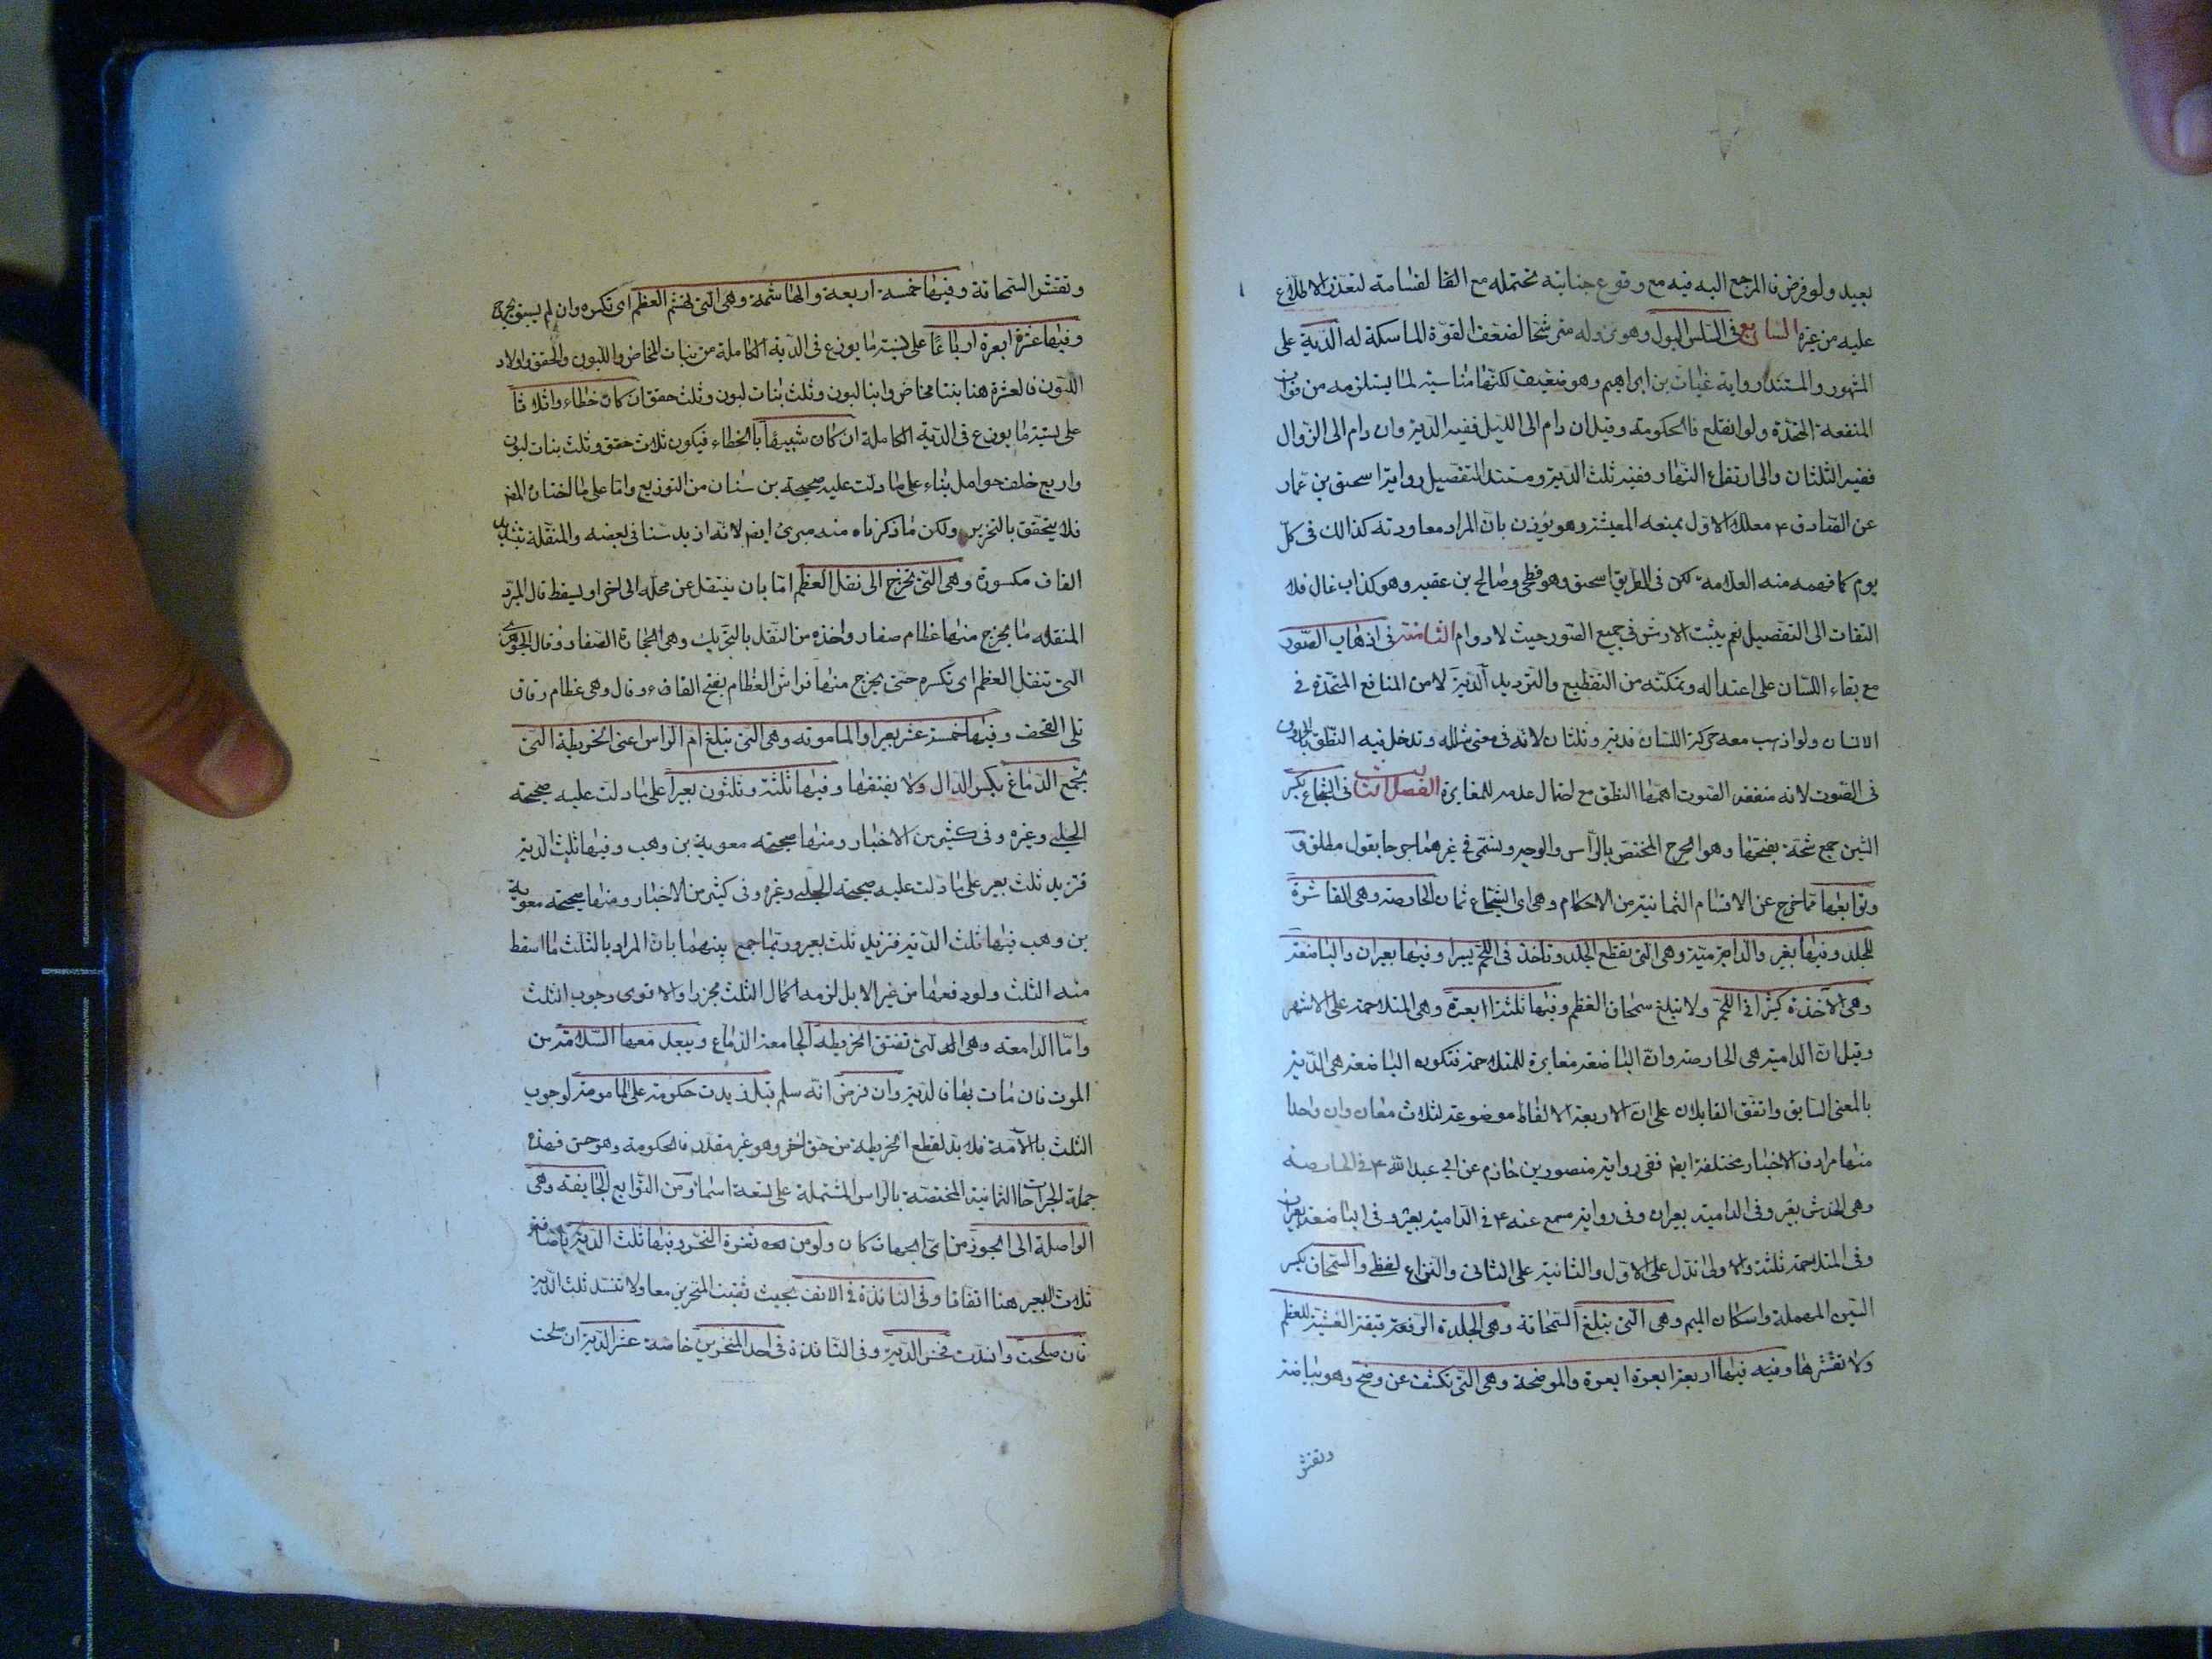 بعيد ولو فرض فالمرجع اليه فيه مع وقوع جناية تحتمله مع القسامة لتعذر الاطلاع
عليه من غيره السابع في السلس البول وهو نزوله مترشحا لضعف القوة الماسكة له الدية على
المشهور والمستند رواية غياث بن ابراهيم وهو ضعيف لكنها مناسبة لما يستلزمه من فوات
المنفعة المتحدة ولو انقطع فالحكومة وقيل ان دام الى الليل ففيه الدية وان دام الى الزوال
ففيه الثلثان والى ارتفاع النهار ففيه ثلث الدية ومستند التفصيل رواية اسحق بن عمار
عن الصادق ع معللا الاول بمنعه المعيشة وهو يؤذن بان المراد معاودته كذالك في كل
يوم كما فهمه منه العلامة لكن في الطريق اسحق وهو فطحي وصالح بن عقبه وهو كذاب غال فلا
التفات الى التفصيل نعم يثبت الارش في جميع الصور حيث لا دوام الثامنة في اذهاب الصوت
مع بقاء اللسان على اعتداله وتمكنه من التقطيع والترديد الدية لانه من المنافع المتحدة في
الانسان ولو اذهب معه حركة اللسان فدية وثلثان لانه في معنى شلله وتدخل فيه النطق بالحروف
في الصوت لانه منفعة الصوت اهمها النطق مع احتمال عدمه للمغايرة الفصل الثالث في الشجاع بكسر
الشين جمع شجة بفتحها وهو الجرح المختص بالراس والوجه ويسمى في غيرهما جرحا بقول مطلق و
وتوابعها مما خرج عن الاقسام الثمانية من الاحكام وهي اى الشجاع ثمان الحارصة وهي القاشرة
للجلد وفيها بعير والدامية وهي التي تقطع الجلد وتاخذ في اللحم يسيرا وفيها بعيران والباضعة
وهي الاخذة كثيرا في اللحم ولا تبلغ سمحاق العظم وفيها ثلثة ابعرة وهي المتلاحمة على الاشهر
وقيل ان الدامية هي الحارصة وان الباضعة مغايرة للمتلاحمة فتكون الباضعة هي الدامية
بالمعنى السابق واتفق القائلان على ان الاربعة الالفاظ موضوعة لثلاث معان وان واحدا
منها مرادف الاخبار مختلفة ايضا ففي رواية منصور بن حازم عن ابي عبدالله ع في الحارصة
وهي الخدش بعير وفي الدامية بعيران وفي رواية مسمع عنه ع في الدامية بعير وفي الباضعة بعيران
وفي المتلاحمة ثلثة والاولى تدل على الاول والثانية على الثاني والنزاع لفظي والسمحاق بكسر
السين المهملة واسكان الميم وهي التي تبلغ السمحاقة وهي الجلدة الرقيقة المغشية للعظم
ولا تقشرها وفيه فيها اربعة ابعرة ابعرة والموضحة وهي التي تكشف عن وضح وهو بياضه
وتقشر
وتقشر السمحاقة وفيها خمسة اربعة والهاشمة وهي التي تهشم العظم اى تكسره وان لم يسبق بجرح
وفيها عشرة ابعرة ارباعا على نسبة ما يوزع في الدية الكاملة من بنات المخاض واللبون والحقق واولاد
اللبون فالعشرة هنا بنتا مخاض وابنا لبون وثلث بنات لبون وثلث حقق ان كان خطاء واثلاثا
على نسبة ما يوزع في الدية الكاملة ان كان شبيها بالخطاء فيكون ثلاث حقق وثلث بنات لبون
واربع خلف حوامل بناء على ما دلت عليه صحيحة بن سنان من التوزيع واما على ما اختاره المص
فلا يتحقق بالتحرير ولكن ما ذكرناه منه مبرئ ايض لانه ازيد سنا في بعضه والمنقلة بتشديد
القاف مكسورة وهي التي تخرج الى نقل العظم اما بان ينتقل عن محله الى اخر او يسقط قال المبرد
المنقله ما يخرج منها عظام صغار واخذه من النقل بالتحريك وهي الحجارة الصغار وقال الجوهري
التي تنقل العظم اى تكسره حتى يخرج منها فراش العظام بفتح الفاء وقال وهي عظام رقاق
تلى القحف وفيها خمسة عشر بعيرا والمامومة وهي التي تبلغ ام الراس اعنى الخريطة التي
تجمع الدماغ بكسر الدال ولا يفتقها وفيها ثلثة وثلثون بعيرا على ما دلت عليه صحيحة
الحلبي وغيره وفي كثير من الاخبار ومنها صحيحة معوية بن وهب وفيها ثلث الدية
فتزيد ثلث بعير على ما دلت عليه صحيحة الحلبي وغيره وفي كثير من الاخبار ومنها صحيحة معوية
بن وهب فيها ثلث الدية فتزيد ثلث بعير وربما جمع بينهما بان المراد بالثلث ما اسقط
منه الثلث ولو دفعها من غير الابل لزمه اكمال الثلث محررا والاقوى وجوب الثلث
واما الدامغة وهي التي تفتق الخريطة الجامعة الدماغ ويبعد معها السلامة من
الموت فان مات بها فالدية وان فرض انه سلم قيل زيدت حكومة على المامومة لوجوب
الثلث بالامة فلا بد لقطع الخريطة من حق اخر وهو غير مقدر فالحكومة وهو حسن فهذه
جملة الجراحات الثمانية المختصة بالراس المشتملة على تسعة اسماء ومن التوابع الجايفة وهي
الواصلة الى الجوف من اى الجهات كان ولو من ثغرة النحر وفيها ثلث الدية باضافة
ثلاث البعير هنا اتفاقا وفي النافذة في الانف بحيث تثقب المنخرين معا ولا تنسد ثلث الدية
فان صلحت وانسدت فخمس الدية وفي النافذة في احد المنخرين خاصة عشر الدية ان صلحت